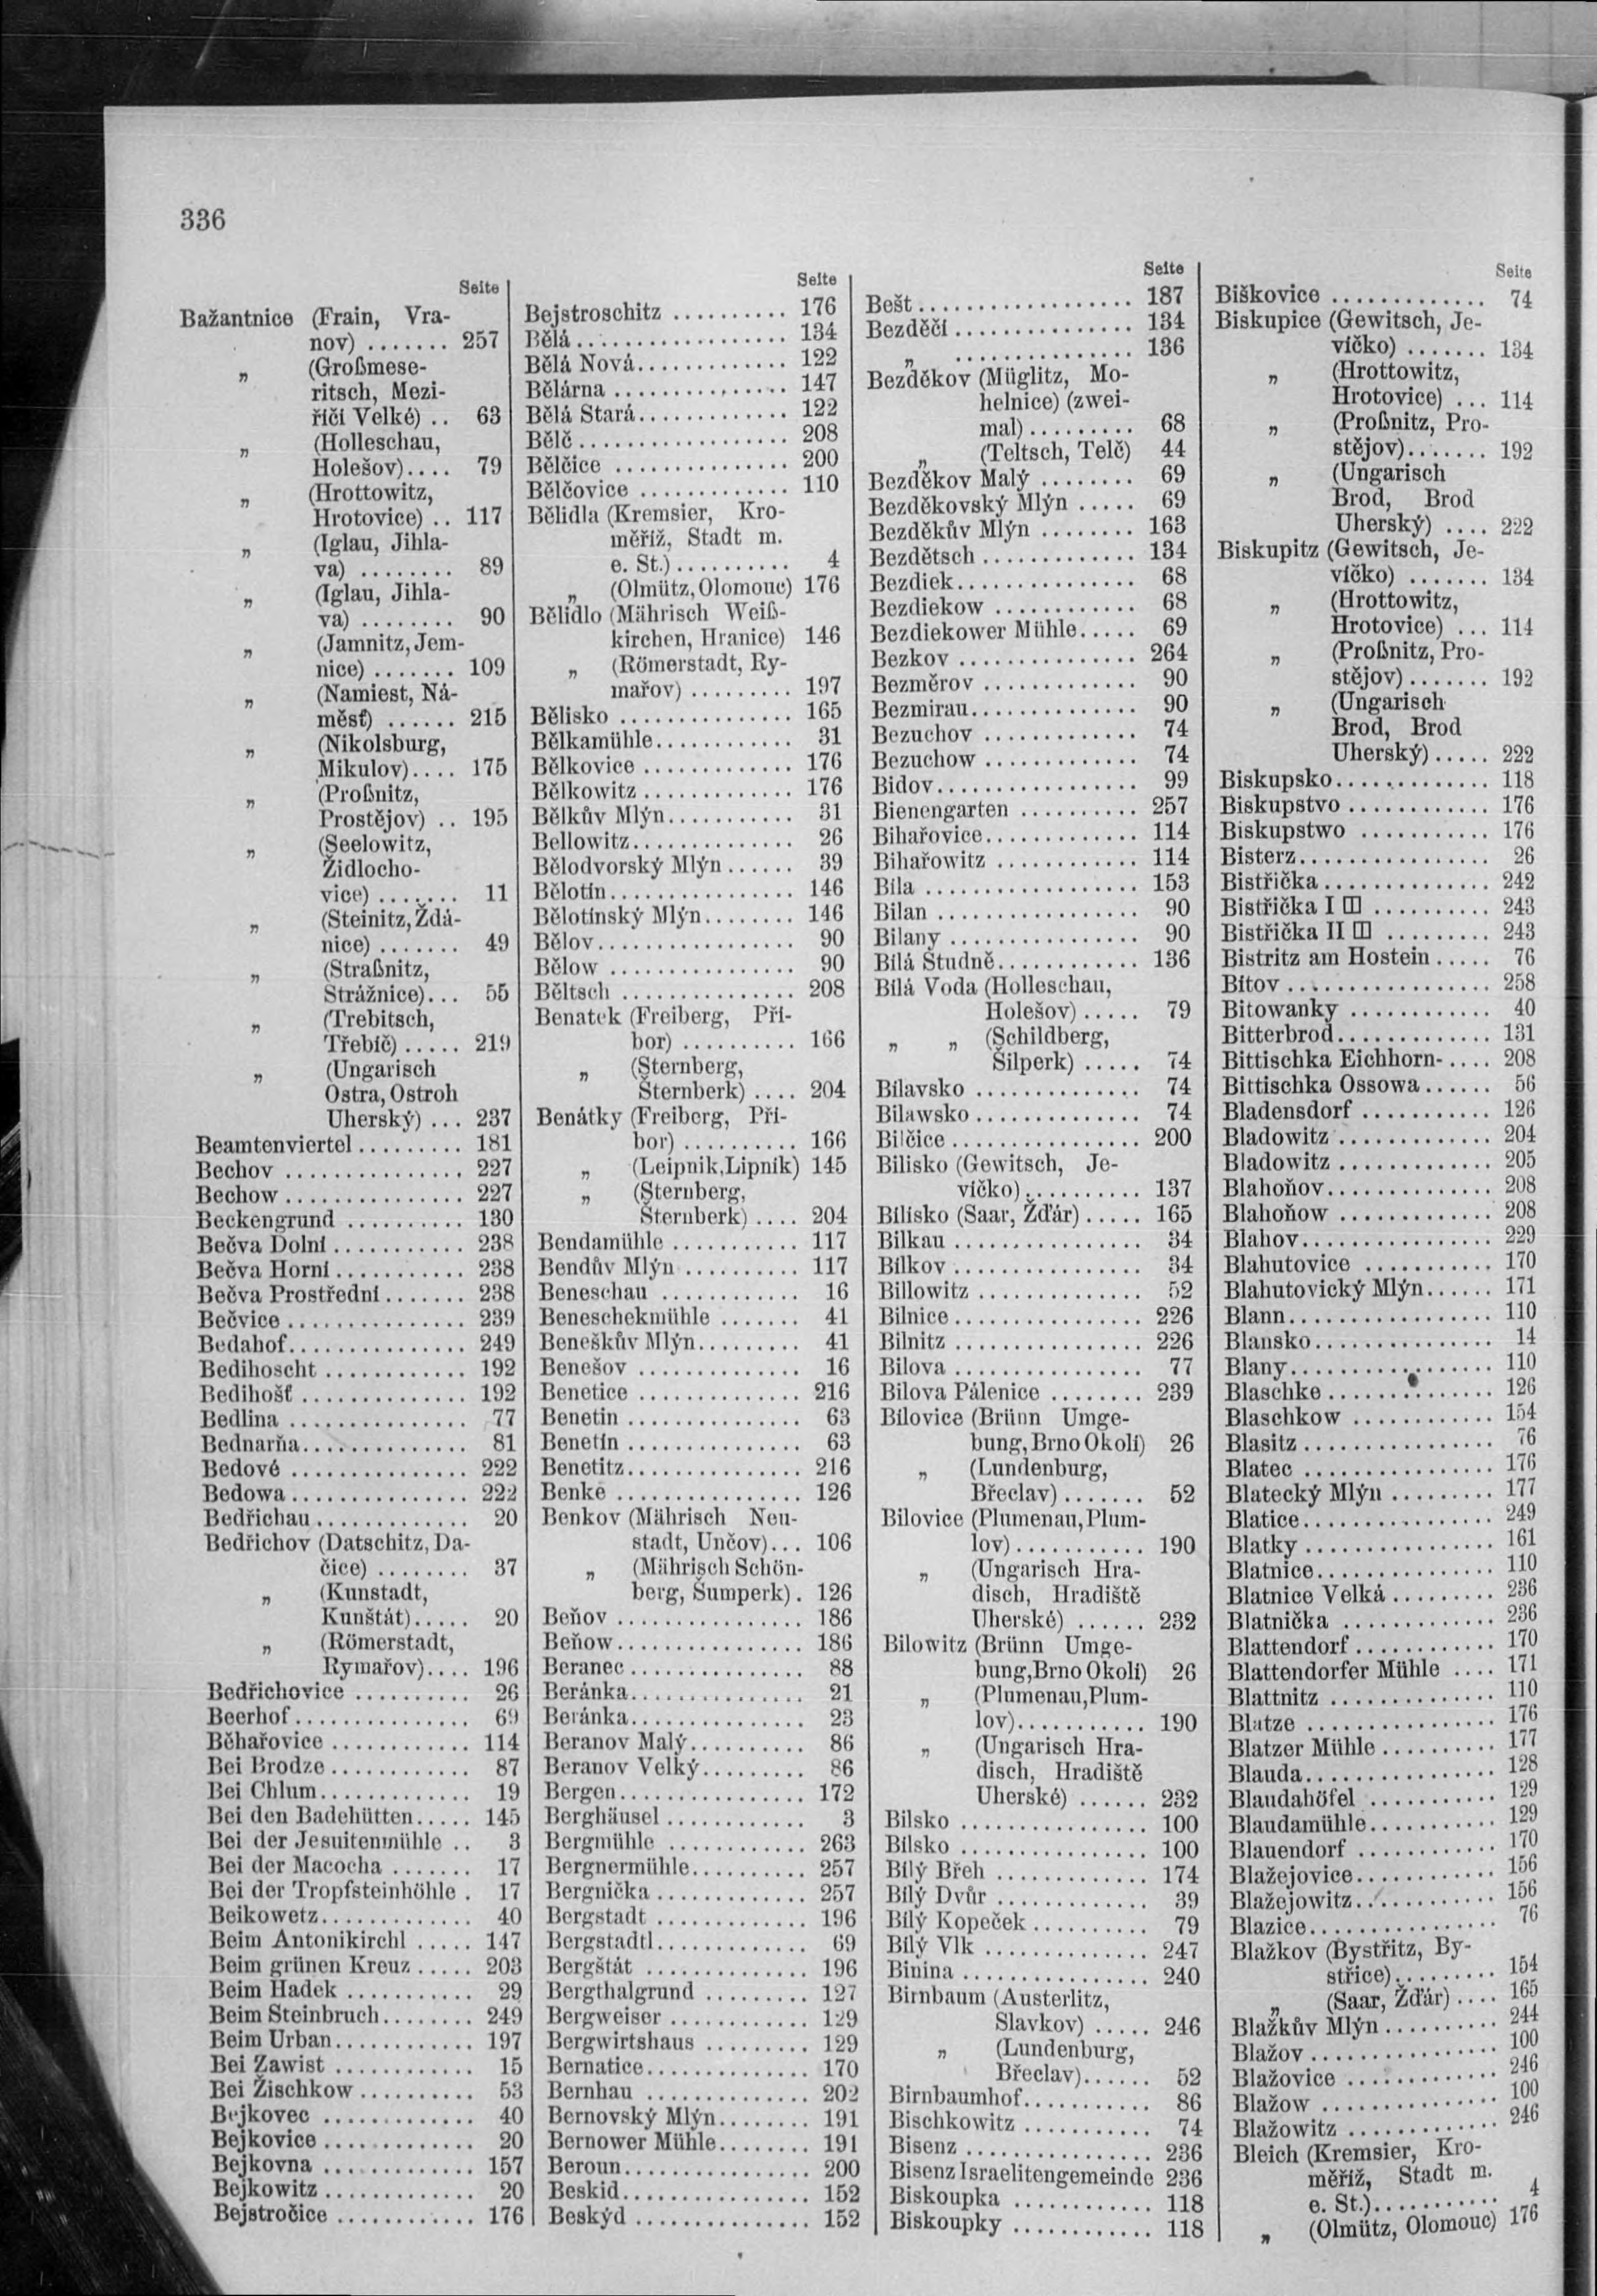 336
Seite
Bažantnice (Frain, Vra-
nov) ....... 257
„ (Großmese-
ritsch, Mezi-
říčí Velké) .. 63
„ (Holleschau,
Holešov).... 79
„ (Hrottowitz,
Hrotovice) .. 117
„ (Iglau, Jihla-
va) ........ 89
„ (Iglau, Jihla-
va) ........ 90
„ (Jamnitz, Jem-
nice) ....... 109
„ (Namiest, Ná-
měšť) ...... 215
„ (Nikolsburg,
Mikulov).... 175
„ (Proßnitz,
Prostějov) .. 195
„ (Seelowitz,
Židlocho-
vice) ....... 11
„ (Steinitz, Ždá-
nice) ....... 49
„ (Straßnitz,
Strážnice)... 55
„ (Trebitsch,
Třebíč) ..... 219
„ (Ungarisch
Ostra, Ostroh
Uherský) ... 237
Beamtenviertel ......... 181
Bechov ............... 227
Bechow ............... 227
Beckengrund .......... 130
Bečva Dolní ............ 238
Bečva Horní ............ 238
Bečva Prostřední ....... 238
Bečvice ............... 239
Bedahof ............... 249
Bedihoscht ............ 192
Bedihošť .............. 192
Bedlina ............... 77
Bednarňa .............. 81
Bedové ............... 222
Bedowa ............... 222
Bedřichau ............. 20
Bedřichov (Datschitz, Da-
čice) ........ 37
„ (Kunstadt,
Kunštát)..... 20
„ (Römerstadt,
Rymařov).... 196
Bedřichovice .......... 26
Beerhof ............... 69
Běhařovice ............ 114
Bei Brodze ............ 87
Bei Chlum ............. 19
Bei den Badehütten ..... 145
Bei der Jesuitenmühle .. 3
Bei der Macocha ....... 17
Bei der Tropfsteinhöhle . 17
Beikowetz ............. 40
Beim Antonikirchl ..... 147
Beim grünen Kreuz ..... 203
Beim Hadek ........... 29
Beim Steinbruch ........ 249
Beim Urban ............ 197
Bei Zawist ............ 15
Bei Žischkow .......... 53
Bejkovec ............. 40
Bejkovice ............. 20
Bejkovna ............. 157
Bejkowitz ............. 20
Bejstročice ............ 176
Seite
Bejstroschitz .......... 176
Bělá .................. 134
Bělá Nová ............. 122
Bělárna ............... 147
Bělá Stará ............. 122
Bělč .................. 208
Bělčice ............... 200
Bělčovice ............. 110
Bělidla (Kremsier, Kro-
měříž, Stadt m.
e. St.) .......... 4
„ (Olmütz, Olomouc) 176
Bělidlo (Mährisch Weiß-
kirchen, Hranice) 146
„ (Römerstadt, Ry-
mařov) ......... 197
Bělisko ............... 165
Bělkamühle ............ 31
Bělkovice ............. 176
Bělkowitz ............. 176
Bělkův Mlýn ........... 31
Bellowitz .............. 26
Bělodvorský Mlýn ...... 39
Bělotín ................ 146
Bělotínský Mlýn ........ 146
Bělov ................. 90
Bělow ................ 90
Běltsch ............... 208
Benatek (Freiberg, Pří-
bor) .......... 166
„ (Sternberg,
Šternberk) .... 204
Benátky (Freiberg, Pří-
bor) .......... 166
„ (Leipnik, Lipník) 145
„ (Sternberg,
Šternberk) .... 204
Bendamühle ........... 117
Bendův Mlýn .......... 117
Beneschau ............ 16
Beneschekmühle ....... 41
Beneškův Mlýn ......... 41
Benešov .............. 16
Benetice .............. 216
Benetin ............... 63
Benetín ............... 63
Benetitz ............... 216
Benke ................ 126
Benkov (Mährisch Neu-
stadt, Unčov)... 106
„ (Mährisch Schön-
berg, Šumperk) . 126
Beňov ................ 186
Beňow ................ 186
Beranec ............... 88
Beránka ............... 21
Beránka ............... 23
Beranov Malý .......... 86
Beranov Velký ......... 86
Bergen ................ 172
Berghäusel ............ 3
Bergmühle ............ 263
Bergnermühle .......... 257
Bergnička ............. 257
Bergstadt ............. 196
Bergstadtl ............. 69
Bergštát .............. 196
Bergthalgrund ......... 127
Bergweiser ............ 129
Bergwirtshaus ......... 129
Bernatice .............. 170
Bernhau .............. 202
Bernovský Mlýn ........ 191
Bernower Mühle ........ 191
Beroun ................ 200
Beskid ................ 152
Beskýd ............... 152
Seite
Bešt .................. 187
Bezděčí ............... 134
„ ............... 136
Bezděkov (Müglitz, Mo-
helnice) (zwei-
mal) ......... 68
„ (Teltsch, Telč) 44
Bezděkov Malý ........ 69
Bezděkovský Mlýn ..... 69
Bezděkův Mlýn ........ 163
Bezdětsch ............. 134
Bezdiek ............... 68
Bezdiekow ............ 68
Bezdiekower Mühle ..... 69
Bezkov ............... 264
Bezměrov ............. 90
Bezmirau .............. 90
Bezuchov ............. 74
Bezuchow ............. 74
Bidov ................. 99
Bienengarten .......... 257
Bihařovice ............. 114
Bihařowitz ............ 114
Bila .................. 153
Bilan ................. 90
Bilany ................ 90
Bílá Studně ............ 136
Bílá Voda (Holleschau,
Holešov) ..... 79
„ „ (Schildberg,
Šilperk) ..... 74
Bilavsko .............. 74
Bilawsko .............. 74
Bilčice ................ 200
Bilisko (Gewitsch, Je-
víčko) .......... 137
Bílisko (Saar, Žďár) ..... 165
Bilkau ................ 34
Bílkov ................ 34
Billowitz .............. 52
Bilnice ................ 226
Bilnitz ................ 226
Bilova ................ 77
Bilova Pálenice ........ 239
Bílovice (Brünn Umge-
bung, Brno Okolí) 26
„ (Lundenburg,
Břeclav) ....... 52
Bilovice (Plumenau, Plum-
lov) ........... 190
„ (Ungarisch Hra-
disch, Hradiště
Uherské) ...... 232
Bilowitz (Brünn Umge-
bung, Brno Okolí) 26
„ (Plumenau, Plum-
lov) ........... 190
„ (Ungarisch Hra-
disch, Hradiště
Uherské) ...... 232
Bilsko ................ 100
Bílsko ................ 100
Bílý Břeh ............. 174
Bílý Dvůr ............. 39
Bílý Kopeček .......... 79
Bílý Vlk .............. 247
Binina ................ 240
Birnbaum (Austerlitz,
Slavkov) ..... 246
„ (Lundenburg,
Břeclav) ...... 52
Birnbaumhof ........... 86
Bischkowitz ........... 74
Bisenz ................ 236
Bisenz Israelitengemeinde 236
Biskoupka ............ 118
Biskoupky ............ 118
Seite
Biškovice ............. 74
Biskupice (Gewitsch, Je-
víčko) ....... 134
„ (Hrottowitz,
Hrotovice) ... 114
„ (Proßnitz, Pro-
stějov) ....... 192
„ (Ungarisch
Brod, Brod
Uherský) .... 222
Biskupitz (Gewitsch, Je-
víčko) ....... 134
„ (Hrottowitz,
Hrotovice) ... 114
„ (Proßnitz, Pro-
stějov) ....... 192
„ (Ungarisch
Brod, Brod
Uherský) ..... 222
Biskupsko ............. 118
Biskupstvo ............ 176
Biskupstwo ........... 176
Bisterz ................ 26
Bistřička .............. 242
Bistřička I ........... 243
Bistřička II ......... 243
Bistritz am Hostein ..... 76
Bítov ................. 258
Bitowanky ............ 40
Bitterbrod ............. 131
Bittischka Eichhorn- .... 208
Bittischka Ossowa ...... 56
Bladensdorf ........... 126
Bladowitz ............. 204
Bladowitz ............. 205
Blahoňov .............. 208
Blahoňow ............. 208
Blahov ................ 229
Blahutovice ........... 170
Blahutovický Mlýn ...... 171
Blann ................. 110
Blansko ............... 14
Blany ................. 110
Blaschke .............. 126
Blaschkow ............ 154
Blasitz ................ 76
Blatec ................ 176
Blatecký Mlýn ......... 177
Blatice ................ 249
Blatky ................ 161
Blatnice ............... 110
Blatnice Velká ......... 236
Blatnička ............. 236
Blattendorf ............ 170
Blattendorfer Mühle .... 171
Blattnitz .............. 110
Blatze ................ 176
Blatzer Mühle .......... 177
Blauda ................ 128
Blaudahöfel ........... 129
Blaudamühle ........... 129
Blauendorf ............ 170
Blažejovice ............ 156
Blažejowitz ............ 156
Blazice ................ 76
Blažkov (Bystřitz, By-
střice) ......... 154
„ (Saar, Žďár) .... 165
Blažkův Mlýn .......... 244
Blažov ................ 100
Blažovice ............. 246
Blažow ............... 100
Blažowitz ............. 246
Bleich (Kremsier, Kro-
měříž, Stadt m.
e. St.) ........... 4
„ (Olmütz, Olomouc) 176